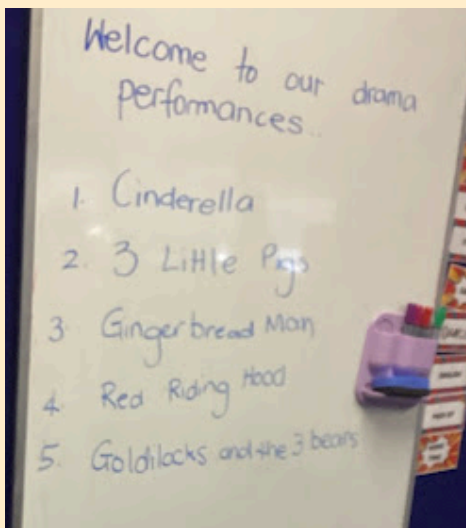 Welcome to our drama
performances..
1. Cinderella
2. 3 Little Pigs
3 Gingerbread Man
4 Red Riding Hood
5. Goldilocks and the 3 bears